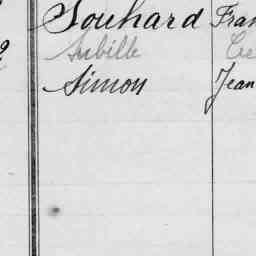 Souhard Fran
Subille Ce
Simon Jean